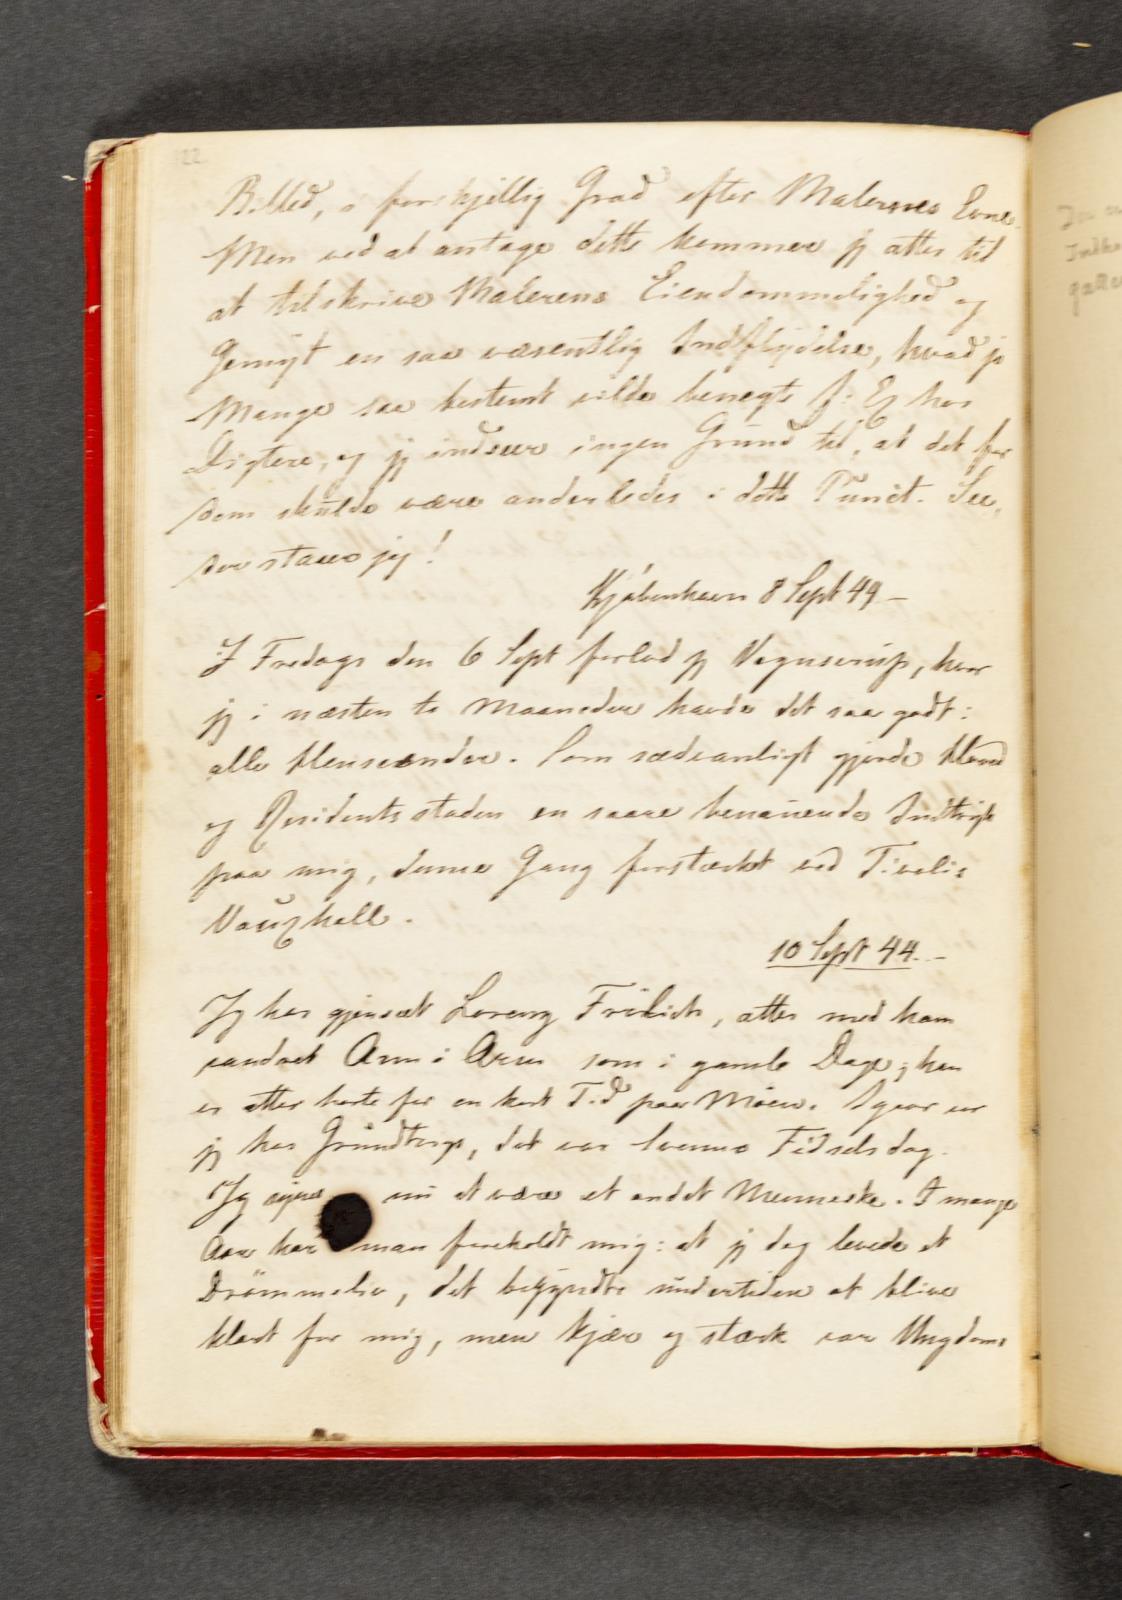 122
Billed, i forskjellig Grad efter Malernes Evne.
Men ved at antage dette kommer jeg atter til
at tilskrive Malerens Eiendommelighed og
Gemyt en saa væsentlig Indflydelse, hvad jo
Mange saa bestemt vilde benegte f: Ex hos
Digtere, og jeg indseer ingen Grund til, at det for
dem skulde være anderledes i dette Punct. See,
der staaer jeg!
Kjøbenhavn 8 Sept 44 –
I Fredags den 6 Sept forlod jeg Vognserup, hvor
jeg i næsten to Maaneder havde det saa godt i
alle Henseender. Som sædvanligt gjorde Hoved
og Residentsstaden en saare benauende Indtryk
paa mig, denne Gang forstærket ved Tivolis
Vauxhall.
10 Sept 44. –
Jeg har gjenseet Lorenz Frølich, atter med ham
vandret Arm i Arm som i gamle Dage; han
er atter borte for en kort Tid paa Møen. Igaar var
jeg hos Grundtvigs, det var Svends Fødselsdag.
Jeg synes nu at være et andet Menneske. I mange
Aar har man foreholdt mig: at jeg dog levede et
Drømmeliv, det begyndte undertiden at blive
klart for mig, men kjær og stærk var Ungdoms